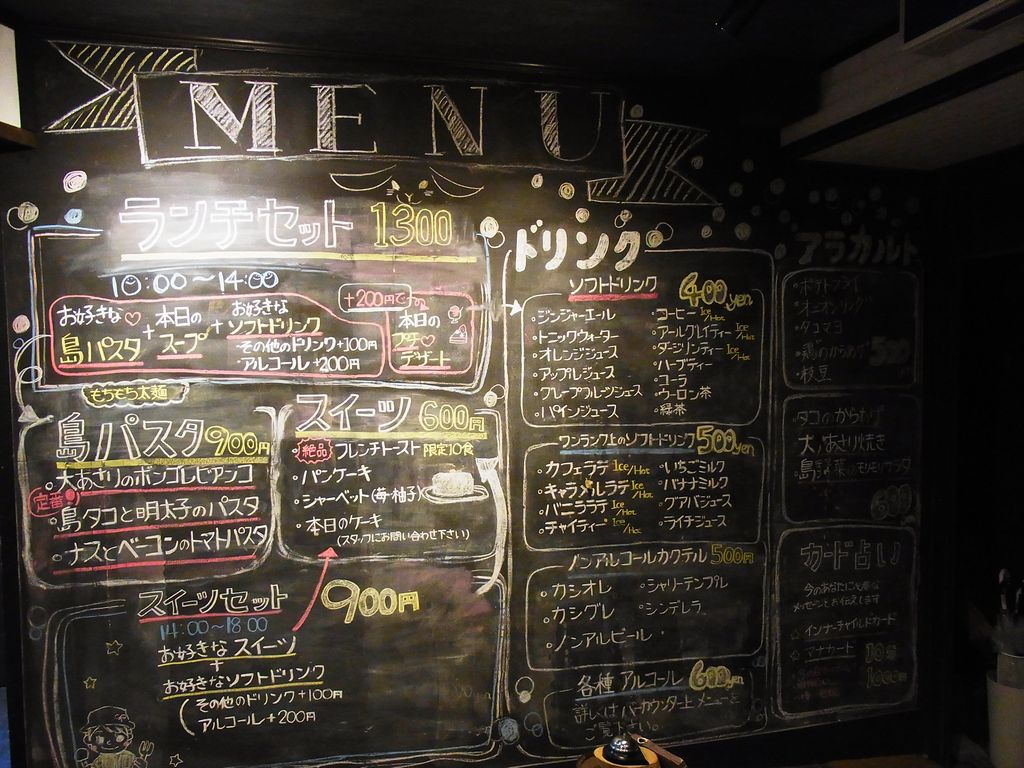 MENU
ランチセット 1300
10:00〜14:00
お好きな♡
島パスタ
+
本日の
スープ
+
お好きな
ソフトドリンク
その他のドリンク+100円
アルコール+200円
+200円で
本日の
プチ♡
デザート
もちもち太麺
島パスタ 900円
定番!
・大あさりのボンゴレビアンコ
・島タコと明太子のパスタ
・ナスとベーコンのトマトパスタ
スイーツ 600円
絶品 フレンチトースト 限定10食
・パンケーキ
・シャーベット(苺・柚子)
・本日のケーキ
(スタッフにお問い合わせ下さい)
スイーツセット
900円
14:00〜18:00
お好きなスイーツ
+
お好きなソフトドリンク
その他のドリンク+100円
アルコール+200円
ドリンク
ソフトドリンク 400yen
・ジンジャーエール
・トニックウォーター
・オレンジジュース
・アップルジュース
・グレープフルーツジュース
・パインジュース
・コーヒー Ice/Hot
・アールグレイティー Ice/Hot
・ダージリンティー Ice/Hot
・ハーブティー
・コーラ
・ウーロン茶
・緑茶
ワンランク上のソフトドリンク 500yen
・カフェラテ Ice/Hot
・キャラメルラテ Ice/Hot
・バニララテ Ice/Hot
・チャイティー Ice/Hot
・いちごミルク
・バナナミルク
・グアバジュース
・ライチジュース
ノンアルコールカクテル 500円
・カシオレ
・カシグレ
・ノンアルビール
・シャーリーテンプル
・シンデレラ
各種アルコール 600yen
詳しくはバーカウンター上メニューを
ご覧下さい。
アラカルト
・ポテトフライ
・オニオンリング
・タコマヨ
・鶏のからあげ
・枝豆
500
・タコのからあげ
・大あさり焼き
600
カード占い
今のあなたに必要な
メッセージをお伝えします
☆インナーチャイルドカード
☆マナカード
10分
1000円